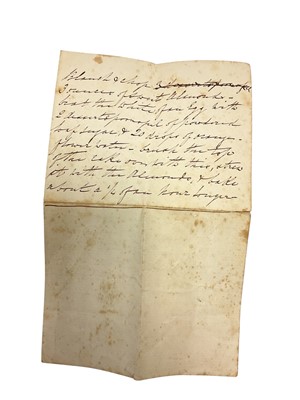 Blanch & chop
3 ounces of sweet Almonds -
beat the White of an Egg with
2 dessertspoonfuls of powdered
loaf sugar & 20 drops of orange
flower water - brush the top
of the cake over with this, strew
it with the Almonds, & bake
about a ¼ of an hour longer